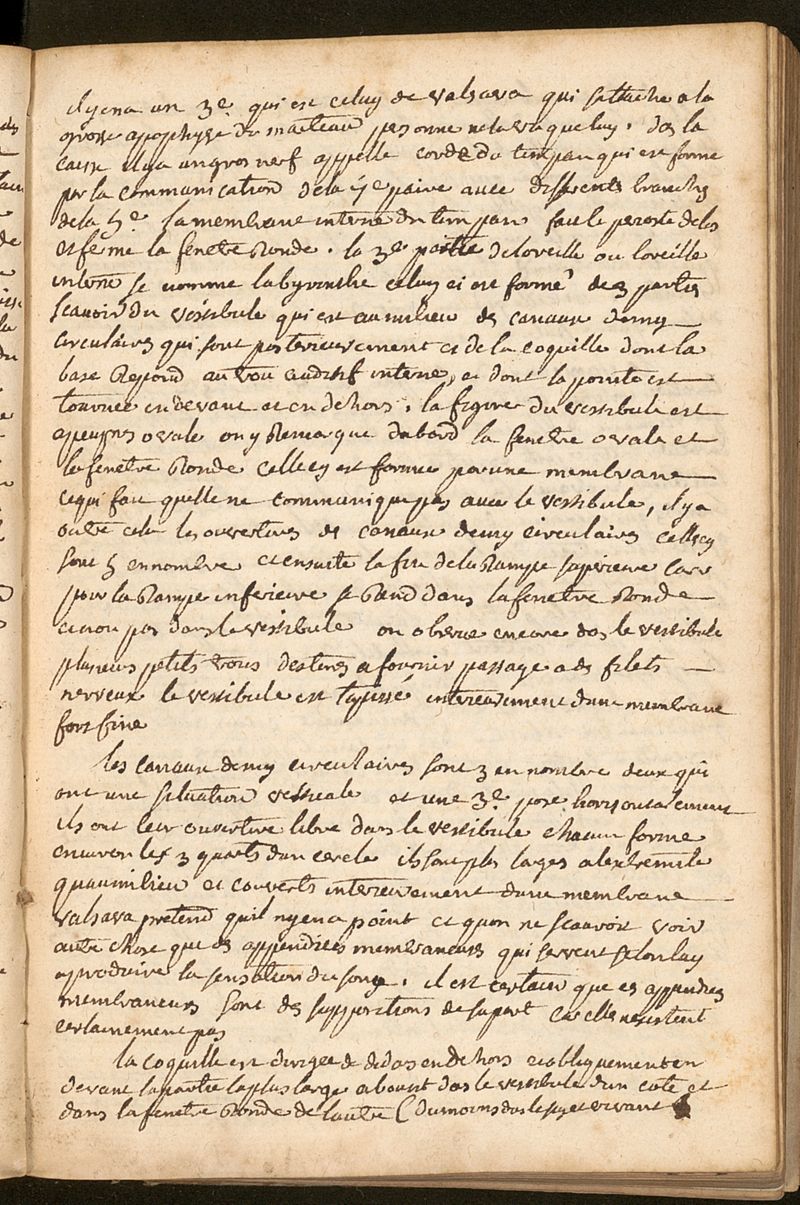 il yena un 3e qui est celuy de valsava qui sattache a la
grosse apophyse du marteau personne ne la vu que luy. das la
caisse il ya un gros nerf appelle corde du timpan qui est forme
par la communication de la 7e paire avec differents branches
de la 5e la membrane interne du timpan fait le perioste de los
et ferme la fenetre Ronde. la 3e partie de loreille ou loreille
interne se nomme labyrinthe celuy ci est formé de 3 parties
scavoir du vestibule qui est au milieu des canaux demy
circulaires qui sont posterieurement et de la coquille dont la
base Repond au trou auditif interne, et dont la pointe est
tournee en devant et en dehors. la figure du vestibule est
apeupres ovale on y Remarque dabord la fenetre ovale et
la fenetre Ronde celle cy est fermee par une membrane
ce qui fait quelle ne communique pas avec le vestibule, il y a
outre cela les ouvertures des canaux demy circulaires celles cy
sont 5 en nombre et ensuite la fin de la Rampe superieure car
pour la Rampe inferieure se Rend dans la fenetre Ronde
et non pas dans le vestibule on observe encore das le vestibule
plusieurs petits trous destines a fournir passage a des filets
nerveux le vestibule est tapissé interieurement dune membrane
fort fine
les canaux demy circulaires sont 3 en nombre deux qui
ont une situation verticale et une 3e pose horisontalement
ils ont leur ouverture libre dans le vestibule chacun forme
environ les 3 quarts dun cercle ils sont plus larges a lextremite
quaumilieu et couverts interieurement dune membrane
valsava pretend quil ny en a point et quon ne scauroit voir
autre chose que des appendices membraneuses qui servent selon luy
a produire la sensation du son. il est certain que ces appendices
membraneuses sont des suppositions de sa part car elle nexistent
certainement pas
la coquille est dirigee de dedas en dehors et obliquement en
devant la partie la plus large aboutit das le vestibule dun coté et
dans la fenetre Ronde de lautre (du moins das le sujet vivant